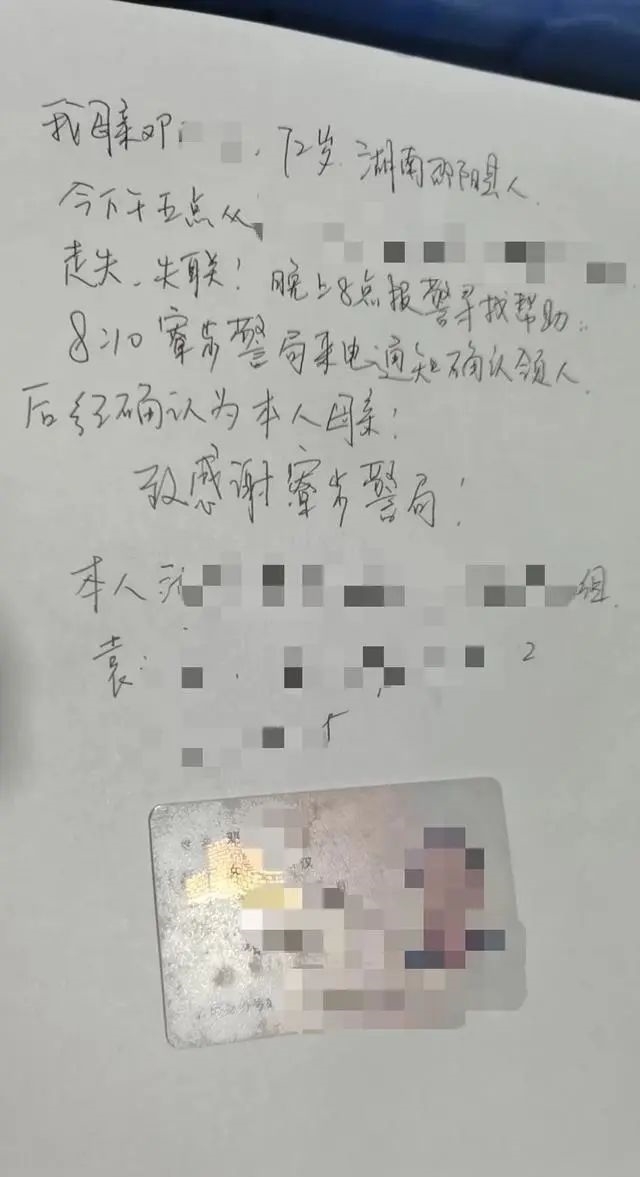 我母亲邓
72岁.湖南邵阳县人.
今下午五点从
走失、失联！晚上8点报警寻找帮助.
8:10寮步警局来电通知确认领人.
后经确认为本人母亲！
致感谢寮步警局！
本人
组.
袁:
2
邓
女 汉